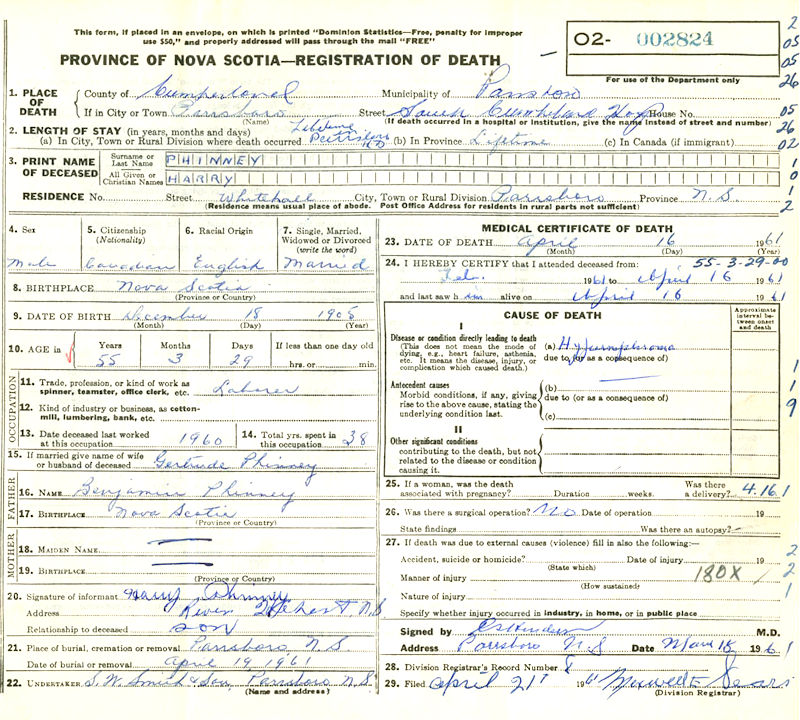 This form, if placed in an envelope, on which is printed "Dominion Statistics—Free, penalty for improper
use $50," and properly addressed will pass through the mail "FREE"
PROVINCE OF NOVA SCOTIA—REGISTRATION OF DEATH
02- 002824
For use of the Department only
2
05
05
26
05
26
02
1
0
1
2
1. PLACE OF DEATH
County of Cumberland Municipality of Parrsboro
If in City or Town Parrsboro Street South Cumberland Hosp House No.
(Name) (If death occurred in a hospital or institution, give the name instead of street and number)
2. LENGTH OF STAY (in years, months and days) Lifetime
(a) In City, Town or Rural Division where death occurred (b) In Province Lifetime (c) In Canada (if immigrant)
3. PRINT NAME OF DECEASED
Surname or Last Name PHINNEY
All Given or Christian Names HARRY
RESIDENCE No. Street Whitehall City, Town or Rural Division Parrsboro Province N.S.
(Residence means usual place of abode. Post Office Address for residents in rural parts not sufficient)
4. Sex
Male
5. Citizenship
(Nationality)
Canadian
6. Racial Origin
English
7. Single, Married,
Widowed or Divorced
(write the word)
Married
8. BIRTHPLACE Nova Scotia
(Province or Country)
9. DATE OF BIRTH December 18 1905
(Month) (Day) (Year)
10. AGE in Years Months Days If less than one day old
55 3 29 hrs. or min.
OCCUPATION
11. Trade, profession, or kind of work as
spinner, teamster, office clerk, etc. Laborer
12. Kind of industry or business, as cotton-
mill, lumbering, bank, etc.
13. Date deceased last worked
at this occupation 1960
14. Total yrs. spent in
this occupation 38
15. If married give name of wife
or husband of deceased Gertrude Phinney
FATHER
16. NAME Benjamin Phinney
17. BIRTHPLACE Nova Scotia
(Province or Country)
MOTHER
18. MAIDEN NAME
19. BIRTHPLACE
(Province or Country)
20. Signature of informant Harry Phinney
Address River Hebert N.S
Relationship to deceased son
21. Place of burial, cremation or removal Parrsboro N.S
Date of burial or removal April 19, 1961
22. UNDERTAKER S.W. Smith & Son, Parrsboro N.S.
(Name and address)
MEDICAL CERTIFICATE OF DEATH
23. DATE OF DEATH April 16 1961
(Month) (Day) (Year)
55-3-29-00
24. I HEREBY CERTIFY that I attended deceased from:
Feb. 1961 to April 16 1961
and last saw him alive on April 16 1961
CAUSE OF DEATH
Approximate
interval be-
tween onset
and death
I
Disease or condition directly leading to death
(This does not mean the mode of
dying, e.g., heart failure, asthenia,
etc. It means the disease, injury, or
complication which caused death.)
(a) Hypernephroma
due to (or as a consequence of)
Antecedent causes
Morbid conditions, if any, giving
rise to the above cause, stating the
underlying condition last.
(b)
due to (or as a consequence of)
(c)
1
1
9
II
Other significant conditions
contributing to the death, but not
related to the disease or condition
causing it.
25. If a woman, was the death
associated with pregnancy? Duration weeks. Was there
a delivery? 4.16 1
26. Was there a surgical operation? No Date of operation 19
State findings Was there an autopsy?
27. If death was due to external causes (violence) fill in also the following:—
Accident, suicide or homicide? Date of injury 19
(State which)
Manner of injury 180X
(How sustained)
Nature of injury
2
2
1
Specify whether injury occurred in industry, in home, or in public place
Signed by M.D.
Address Parrsboro N.S Date 18 1961
28. Division Registrar's Record Number 8
29. Filed April 21st 1961 Maxwell Sears
(Division Registrar)